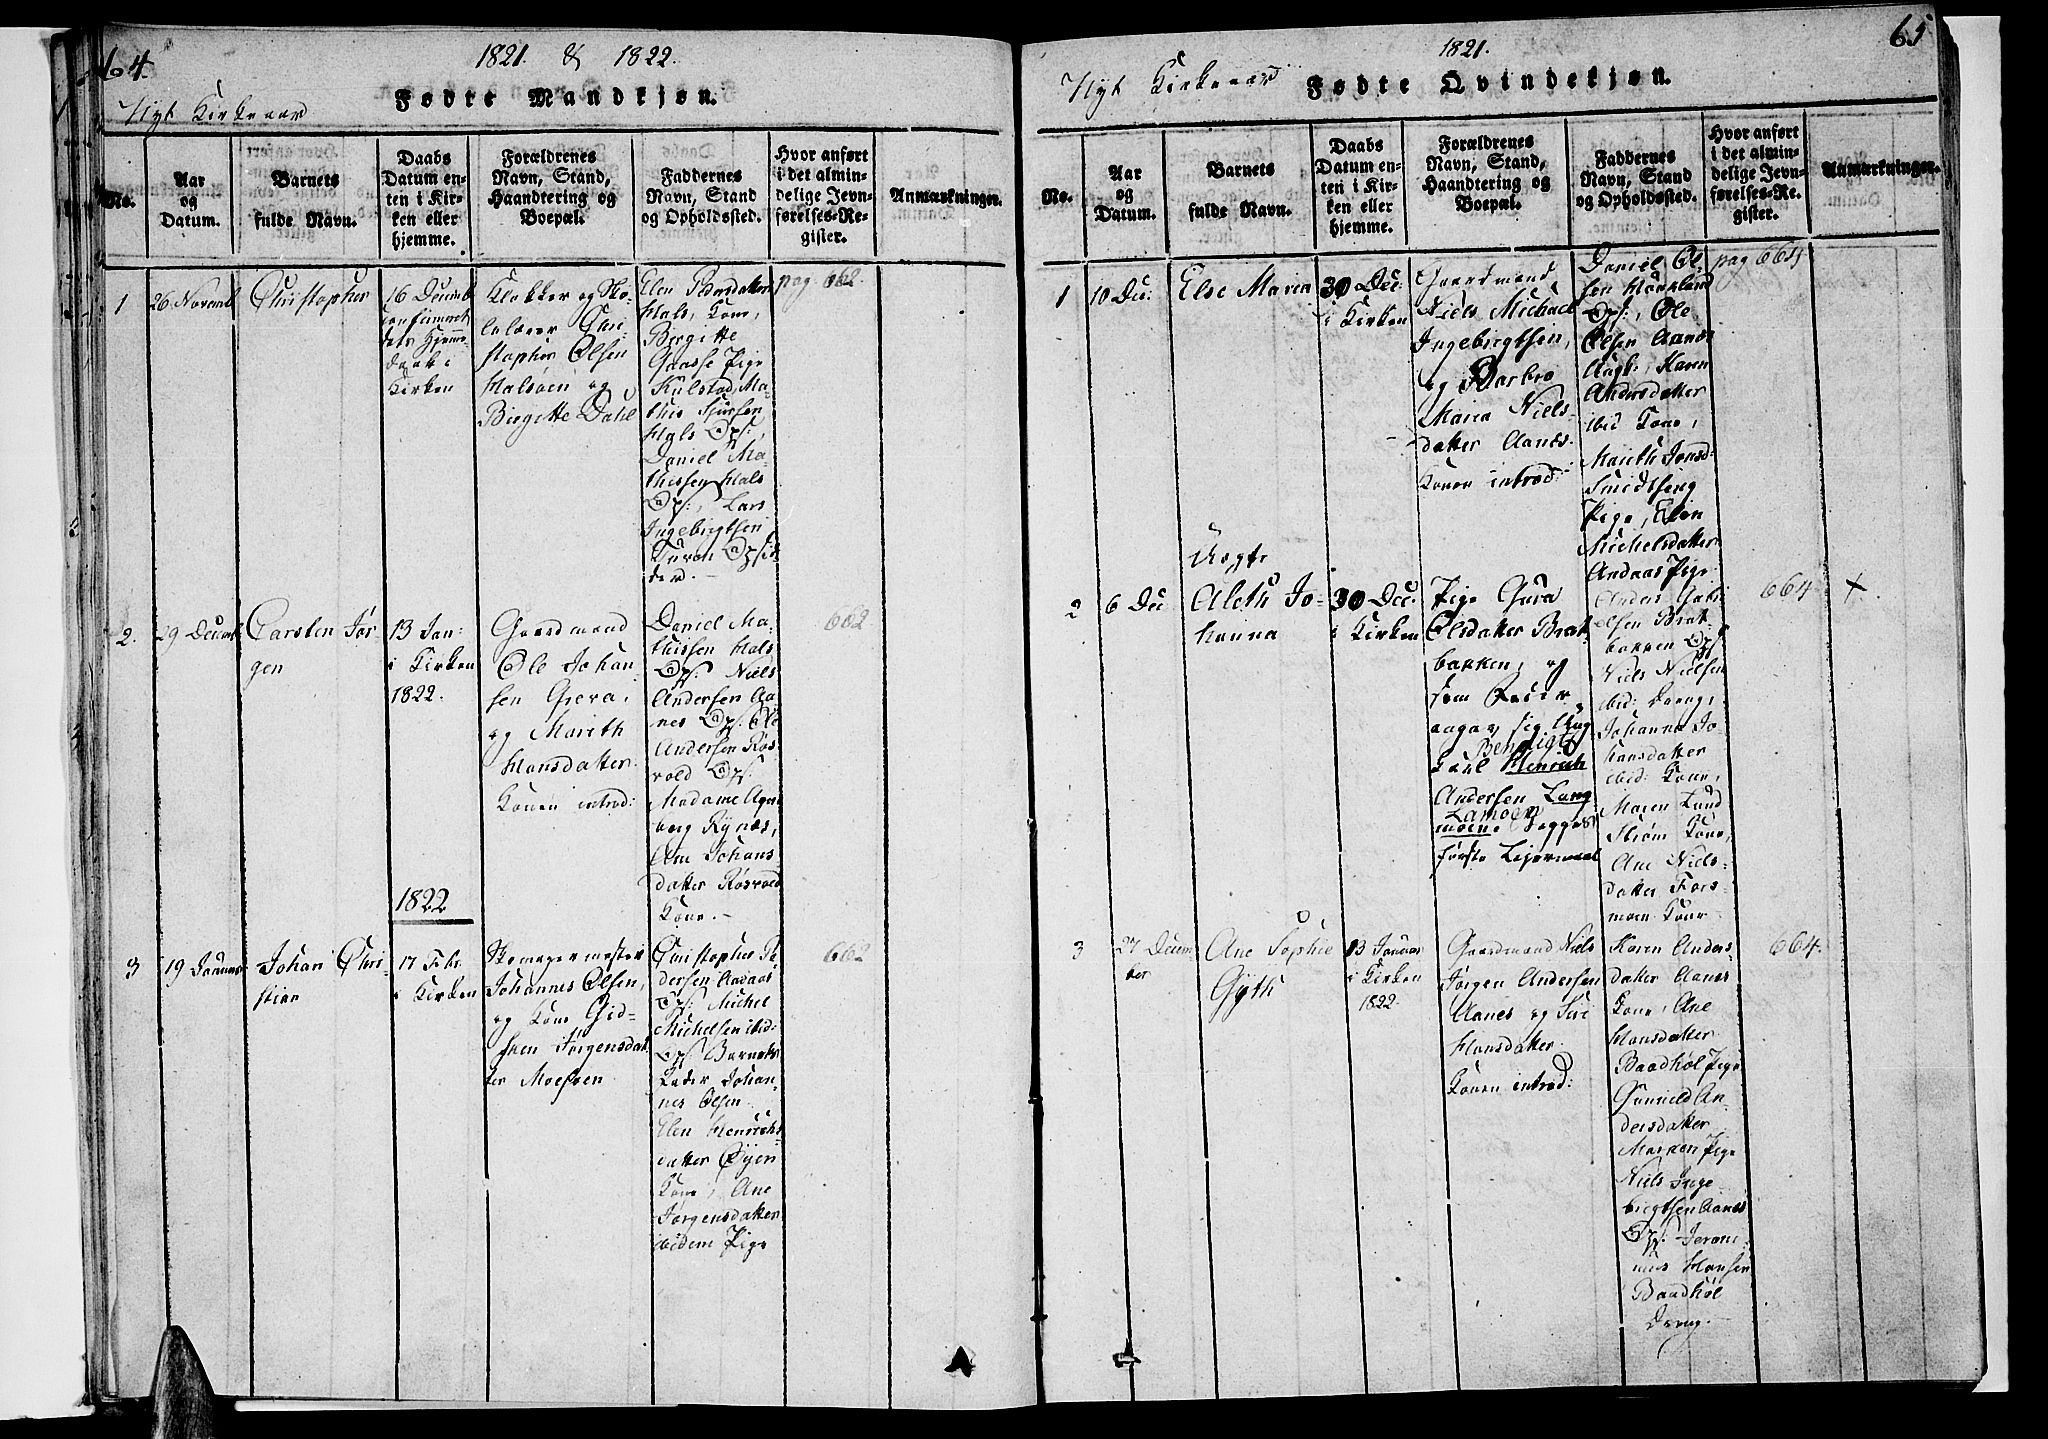 64.
1821. & 1822.
Nyt Kirkeaar
Fødte Mandkjøn.
No.
Aar
og
Datum.
Barnets
fulde Navn.
Daabs
Datum en-
ten i Kir-
ken eller
hjemme.
Forældrenes
Navn, Stand,
Haandtering og
Boepæl.
Faddernes
Navn, Stand
og Opholdssted.
Hvor anført
i det almin-
delige Jevn-
førelses-Re-
gister.
Anmærkninger.
1
26 Novemb
Christopher
16 Decemb
Hjemme-
daab i
Kirken
Klokker og Sko-
lelærer Chri-
stopher Olsen
Halsøen og
Birgitte Dahl
Elen Pedersdatter
Hals, Kone,
Birgitte
Pige
Kulstad, Ma-
this Sjursen
Hals Ops:,
Daniel Ma-
thissen Hals
Ops:, Lars
Ingebrigtsen
Turon Opsid-
der.-
pag. 662
2.
29 Decemb
Carsten Jør-
gen
13 Jan:
i Kirken
1822.
Gaardmand
Ole Johan-
sen Grera,
og Marith
Hansdatter.
Konen introd:
Daniel Ma-
thissen Hals
Ops: Niels
Andersen Aa-
nes Ops: Ole
Andersen Røs-
vold Ops:
Madame
berg Rynæs,
Ane Johans
datter Røsvold
Kone.-
662
1822
3
19 Januar
Johan Chri-
stian
17 Febr.
i Kirken
Skomagermester
Johannes Olsen,
og Kone Gid-
sken Jørgensdat-
ter Moesøen
Christopher Pe-
dersen Andaas
Ops: Michel
Michelsen ibid:
Ops: Barnets
Fader Johan-
nes Olsen.
Elen Henrichs-
datter Øyen
Kone, Ane
Jørgensdatter
ibidem Pige
662
65
1821.
Nyt Kirkeaar
Fødte Qvindekjøn.
No.
Aar
og
Datum.
Barnets
fulde Navn.
Daabs
Datum en-
ten i Kir-
ken eller
hjemme.
Forældrenes
Navn, Stand,
Haandtering og
Boepæl.
Faddernes
Navn, Stand
og Opholdssted.
Hvor anført
i det almin-
delige Jevn-
førelses-Re-
gister.
Anmærkninger.
1
10 Dec:
Else Maria
30 Dec:
i Kirken
Gaardmand
Niels Michael
Ingebrigtsen,
og Barbro
Maria Niels-
datter Aanæs.
Konen introd:
Daniel Ol-
sen
Ops:, Ole
Olsen Aanæs
Ungk:, Karen
Andersdatter
ibid Kone,
Marith Jonsd:
Smidtseng
Pige, Elen
Michelsdatter
Andaas Pige
pag 664
2
6 Dec
Uægte
Aleth Jo-
hanna
30 Dec:
i Kirken
Pige Gura
Olsdatter Brat-
bakken, og
som Fader
angav sig Ung
Benedigt
Karl Henrich
Andersen Lang
Lamoen
moen. Begges
første Leiermaal
Anders Gabri-
elsen Brat-
bakken Ops
Niels Nielsen
ibid: Dreng,
Johanna Jo-
hansdatter
ibid: Kone,
Maren Lund
Strøm Kone,
Ane Niels-
datter Fors-
moen Kone
664
x
3
27 Decem-
ber
Ane Sophie
Gyth
13 Januar
i Kirken
1822.
Gaardmand Niels
Jørgen Andersen
Aanes og Siri
Hansdatter.
Konen introd:
Karen Anders-
datter Aanes
Kone, Ane
Hansdatter
Baadhøl Pige
Gunnild An-
dersdatter
Pige
Niels Inge-
brigtsen Aanes
Ops: Jeroni-
mus Hansen
Baadhøl
Dreng.-
664.